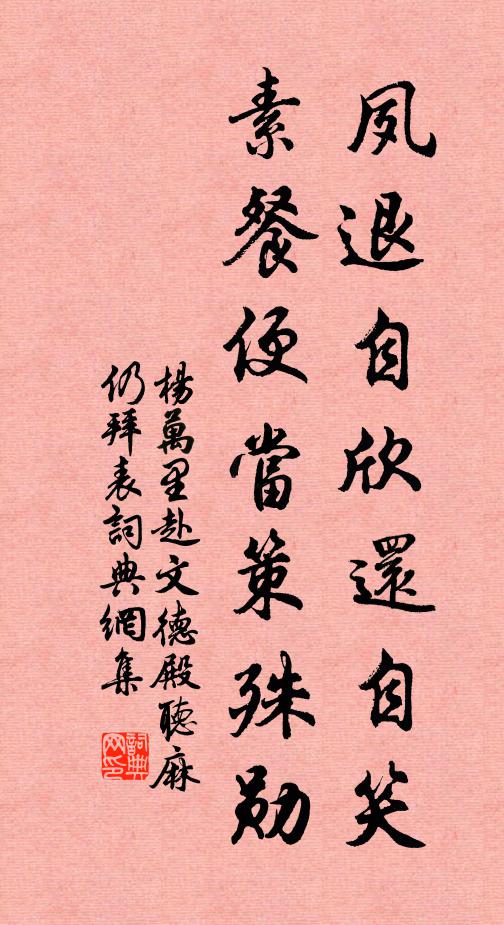 夙退自欣還自笑
素餐便當策殊勛
楊萬里赴文德殿聽麻
仍拜表詞典網集
詞典網印